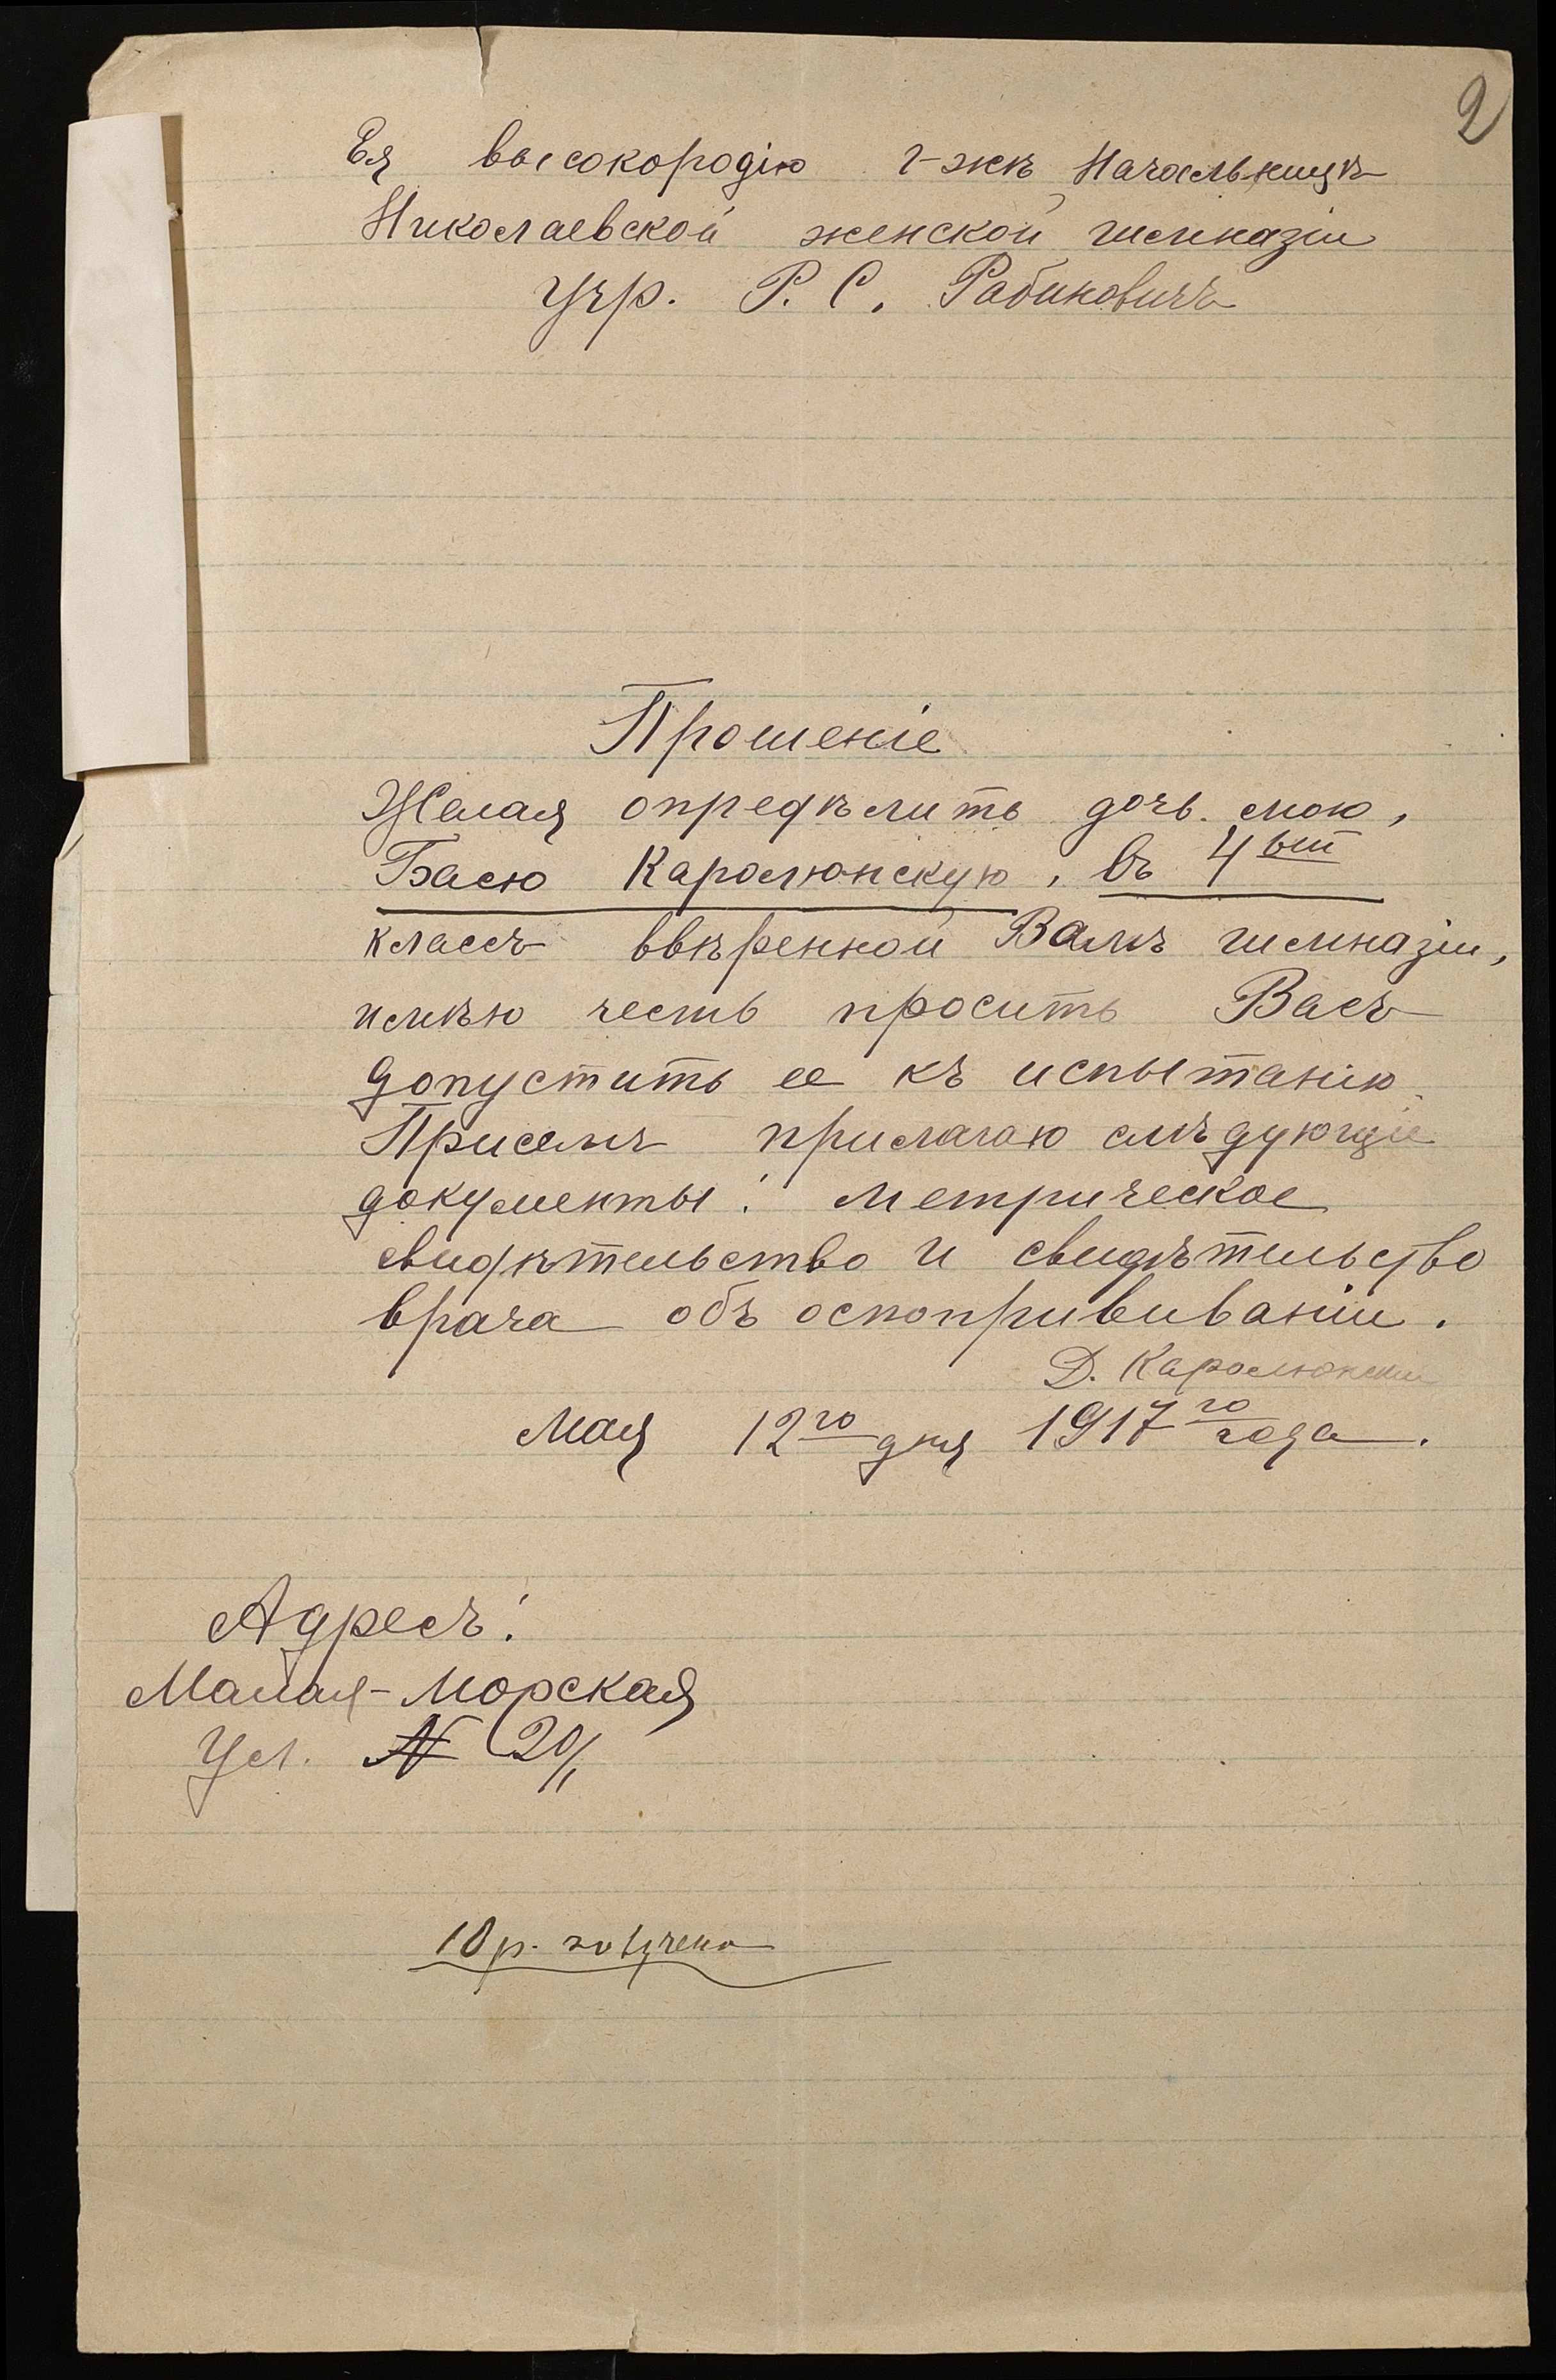 2
Ея высокородію г-жѣ Начальницѣ
Николаевской женской гимназіи
Учр. Р. С. Рабиновичъ
Прошеніе
Желая опредѣлить дочь мою,
Басю Каролюнскую, въ 4ый
классъ ввѣренной Вамъ гимназіи,
имѣю честь просить Васъ
допустить ее къ испытанію.
Присемъ прилагаю слѣдующіе
документы: метрическое
свидѣтельство и свидѣтельство
врача объ оспопрививаніи.
Д. Каролюнскій
Мая 12го дня 1917го года.
Адресъ:
Малая-Морская
Ул. № 20/1
10 р. получено